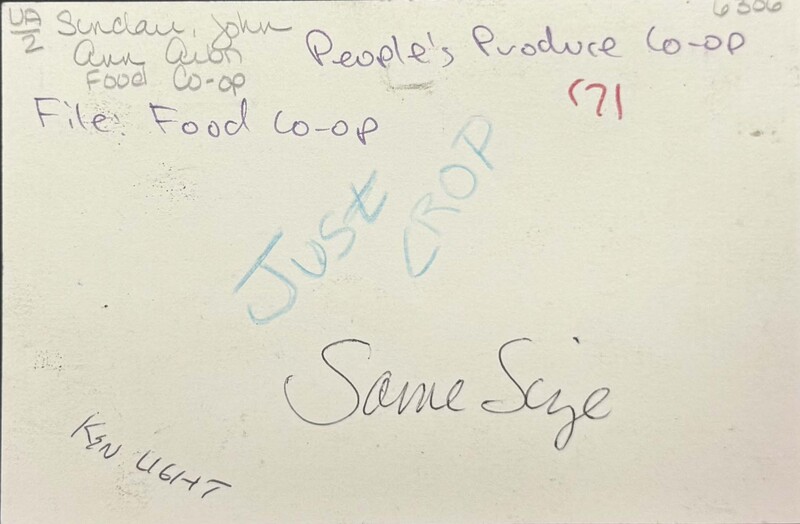 UA
2
Sinclair, John
Ann Arbor
Food Co-op
6306
People's Produce Co-op
File: Food Co-op
(71
JUST
CROP
Same Size
KEN LIGHT